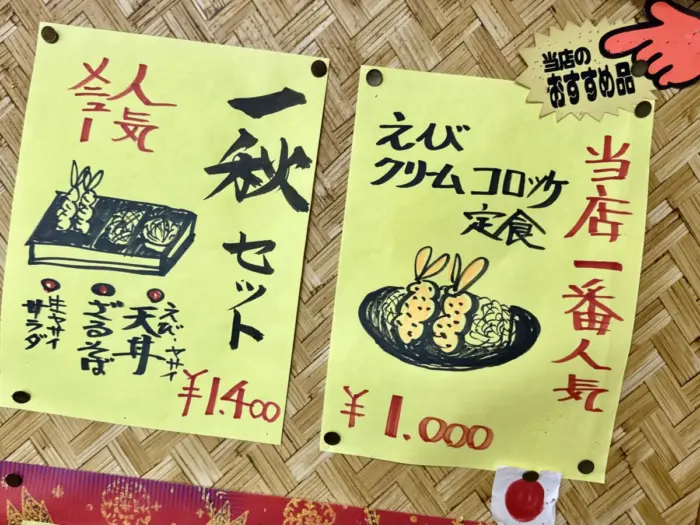 人気
メニュー
一秋
セット
えび・ヤサイ
天丼
ざるそば
生ヤサイ
サラダ
¥1.400
当店の
おすすめ品
当店一番人気
えび
クリームコロッケ
定食
¥1.000